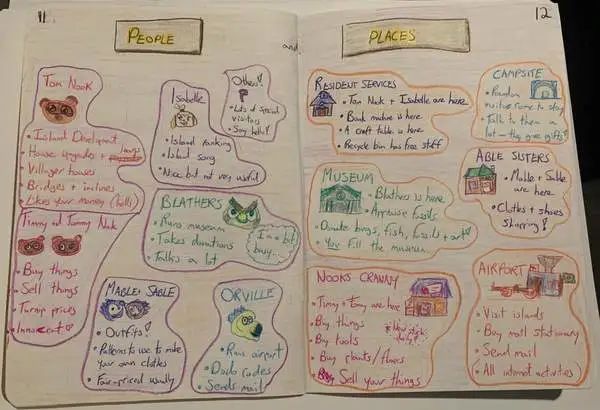 11
PEOPLE
Tom Nook
• Island Development
• House upgrades + loans
• Villager houses
• Bridges + inclines
• Likes your money (bells)
Timmy and Tommy Nook
• Buy things
• Sell things
• Turnip prices
• Innocent?
Isabelle
• Island ranking
• Island song
• Nice but not very useful
Others!
?
• Lots of special
visitors
• Say hello!
BLATHERS
• Runs museum
• Takes donations
• Talks a lot
I'm a bit
busy...
MABLE + SABLE
• Outfits!
• Patterns to use to make
your own clothes
• Fair-priced usually
ORVILLE
• Runs airport
• Dodo codes
• Sends mail
and
12
PLACES
RESIDENT SERVICES
• Tom Nook + Isabelle are here
• Bank machine is here
• A craft table is here
• Recycle bin has free stuff
CAMPSITE
• Random
visitors come to stay
• Talk to them a
lot - they give gifts!
MUSEUM
• Blathers is here
• Appraise fossils
• Donate bugs, fish, fossils + art!
• You fill the museum.
ABLE SISTERS
• Mable + Sable
are here
• Clothes + shoes
shopping!
NOOKS CRANNY
• Timmy + Tommy are here
• Buy things
• Buy tools
• Buy plants/flowers
• Sell your things
* New stock
daily!
AIRPORT
• Visit islands
• Buy mail stationary
• Send mail
(All internet activities)